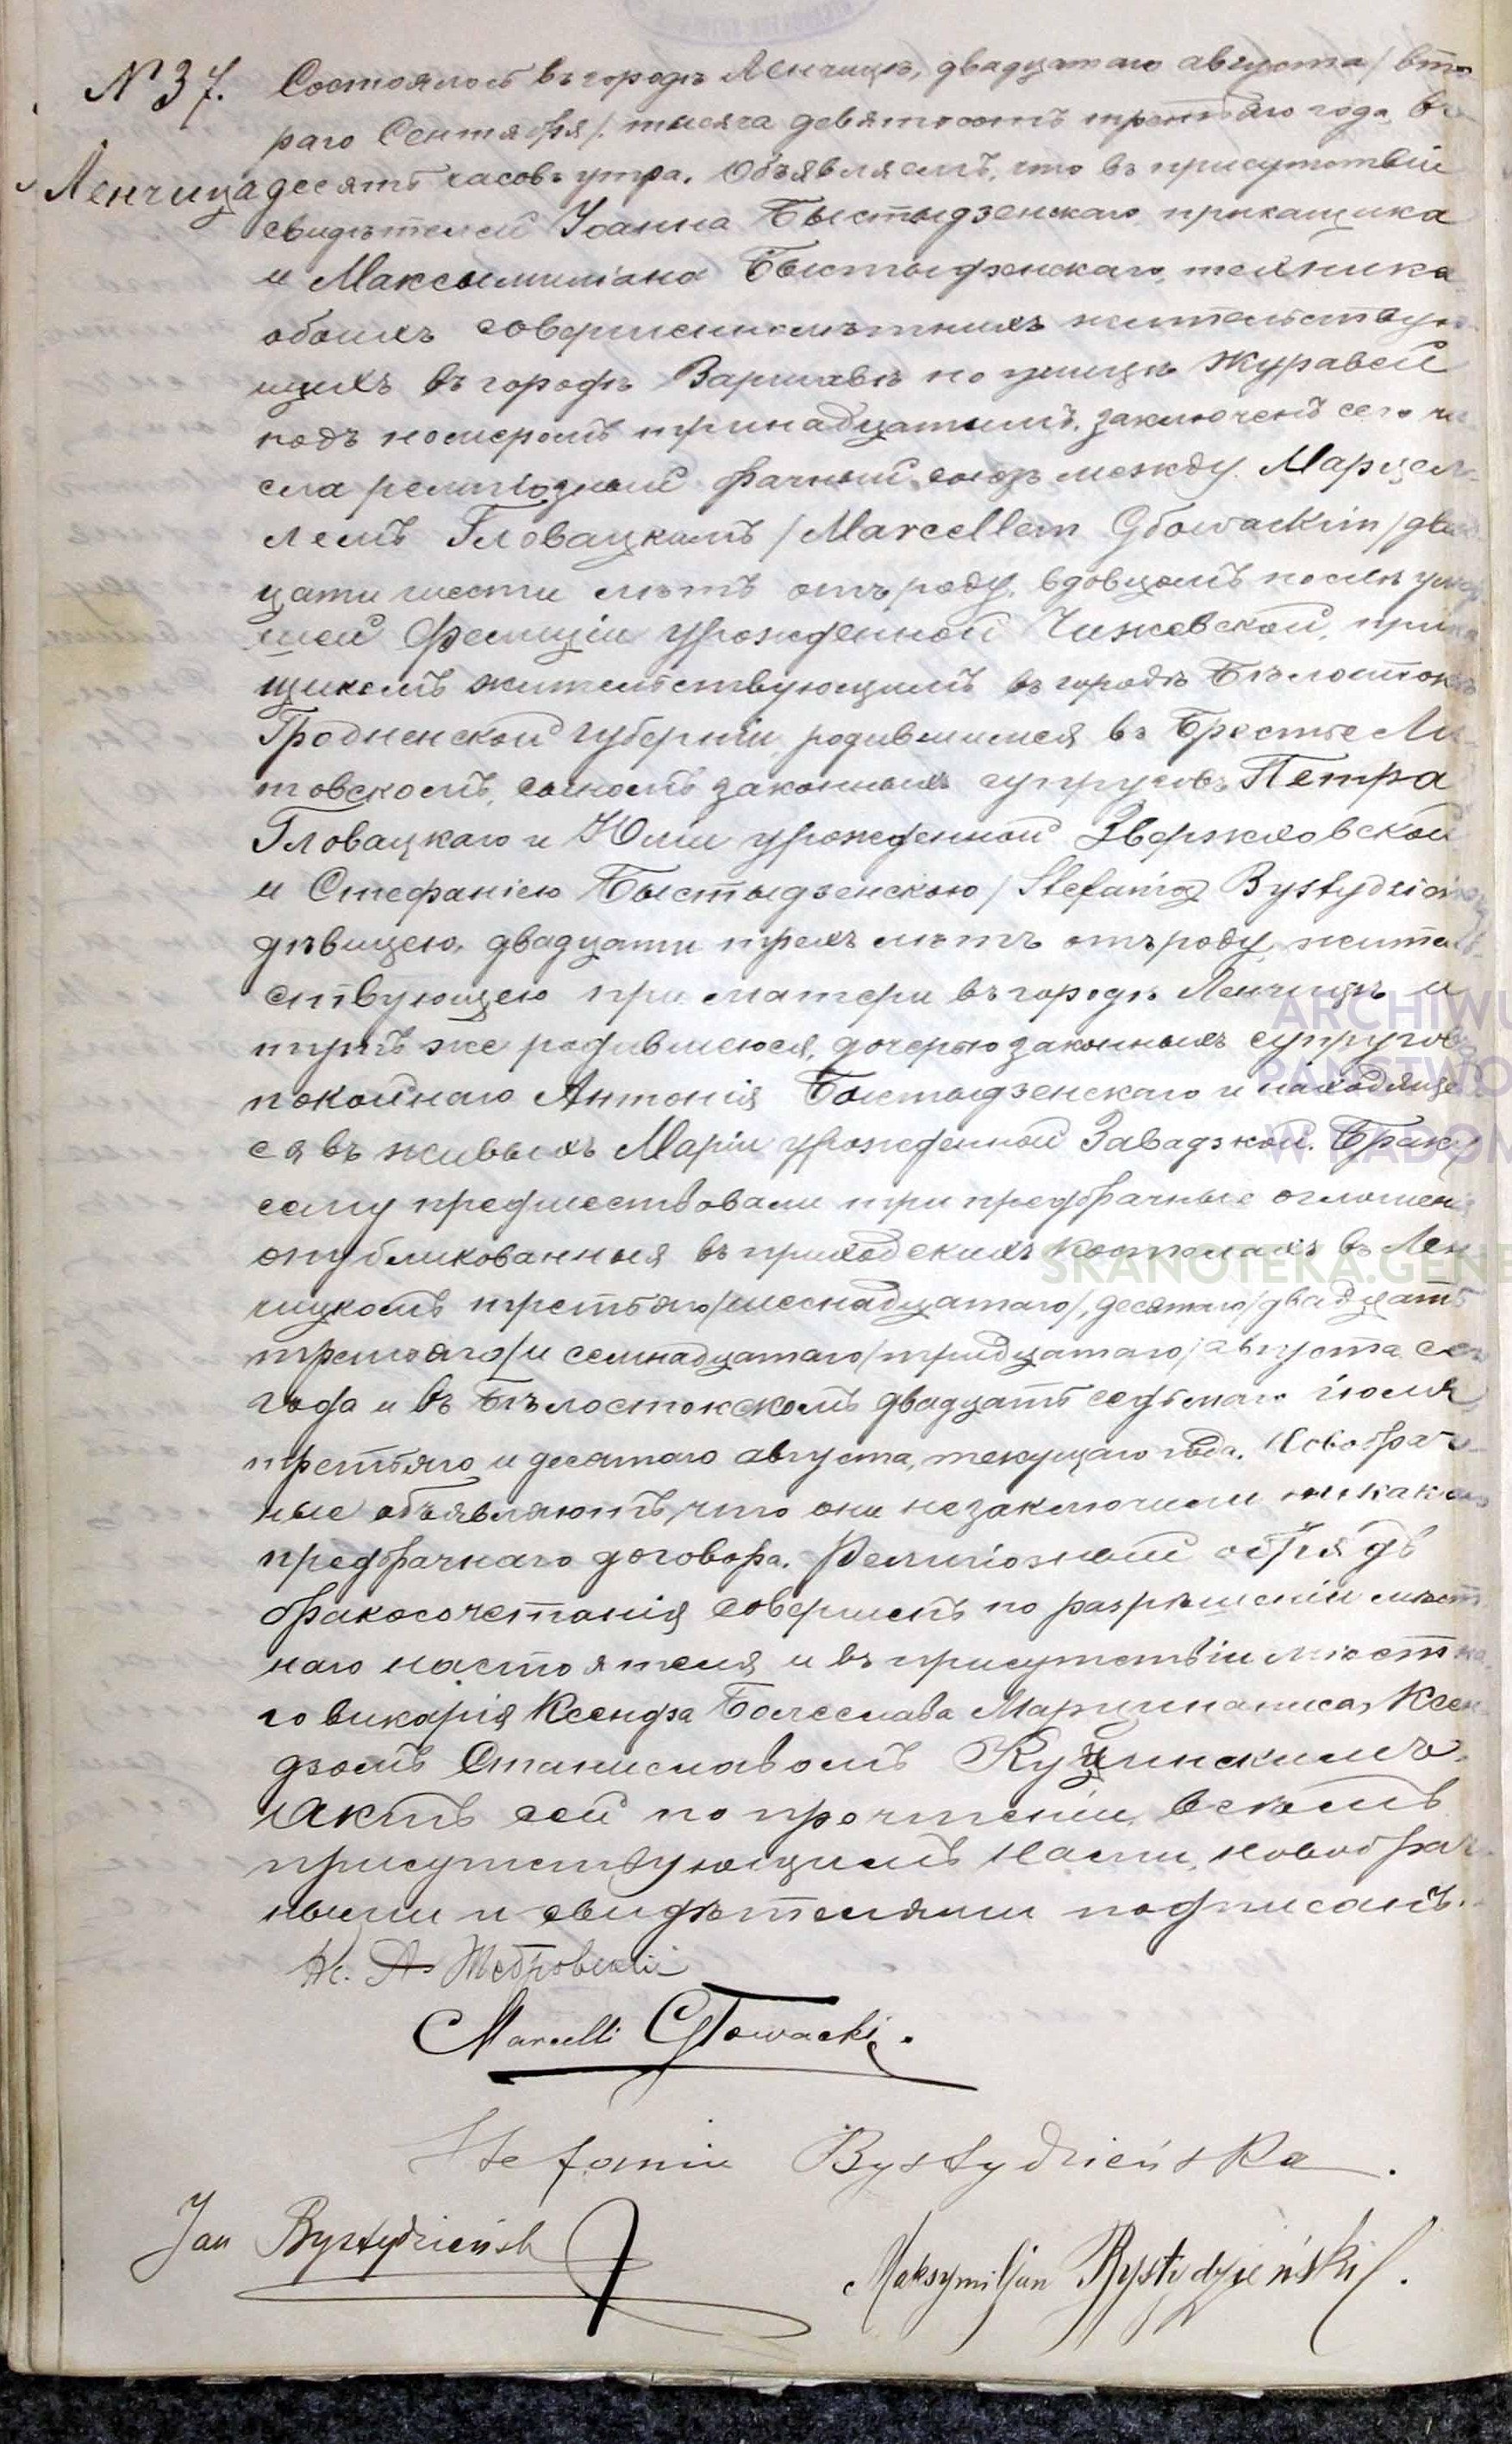 № 37. Состоялось въ городѣ Ленчицѣ, двадцатаго августа / вто-
раго Сентября /. тысяча девятьсотъ третьяго года въ
Ленчица десять часовъ утра. Объявляемъ, что въ присутствіи
свидѣтелей Іоанна Быстыдзенскаго прикащика
и Максымиліана Быстыдзенскаго, техника
обоихъ совершеннолѣтнихъ жительствую-
щихъ въ городѣ Варшавѣ по улицѣ Журавей
подъ номеромъ тринадцатымъ, заключенъ сего чи-
сла религіозный брачный союзъ между Марцел-
лемъ Гловацкимъ / Marcellem Głowackim / двад-
цати шести лѣтъ отъ роду, вдовцомъ послѣ умер-
шей Фелиціи урожденной Чижевской, прика-
щикомъ жительствующимъ въ городѣ Бѣлостокѣ
Гродненской губерніи родившимся въ Брестѣ Ли-
товскомъ, сыномъ законныхъ супруговъ Петра
Гловацкаго и Юліи урожденной Звержховской
и Стефаніею Быстыдзенскою / Stefanią
дѣвицею, двадцати трехъ лѣтъ отъ роду, житель-
ствующею при матери въ городѣ Ленчицѣ и
тутъ же родившеюся, дочерью законныхъ супруговъ
покойнаго Антонія Быстыдзенскаго и находящей
ся въ живыхъ Маріи урожденной Завадзкой. Браку
сему предшествовали три предбрачные оглашенія
опубликованныя въ приходскихъ костелахъ въ Лен
чицкомъ третьяго /шеснадцатаго/, десятаго /двадцать
третьяго/ и семнадцатаго /тридцатаго/ августа сего
года и въ Бѣлостокскомъ двадцать седьмаго іюля,
третьяго и десятаго августа, текущаго года. Новобрач-
ные объявляютъ, что они незаключили никакого
предбрачнаго договора. Религіозный обрядъ
бракосочетанія совершенъ по разрѣшеніи мѣст-
наго настоятеля и въ присутствіи мѣстна-
го викарія Ксендза Болеслава Ксен-
дзомъ Станиславомъ
Актъ сей по прочтеніи всѣмъ
присутствующимъ нами, новобрач-
ными и свидѣтелями подписанъ.
Кс. А
Marcelli Głowacki.
Stefania Bystydzieńska.
Jan Bystydzieński
Maksymiljan Bystydzieński.
ARCHIWU
PAŃSTWO
W RADOM
SKANOTEKA.GENE